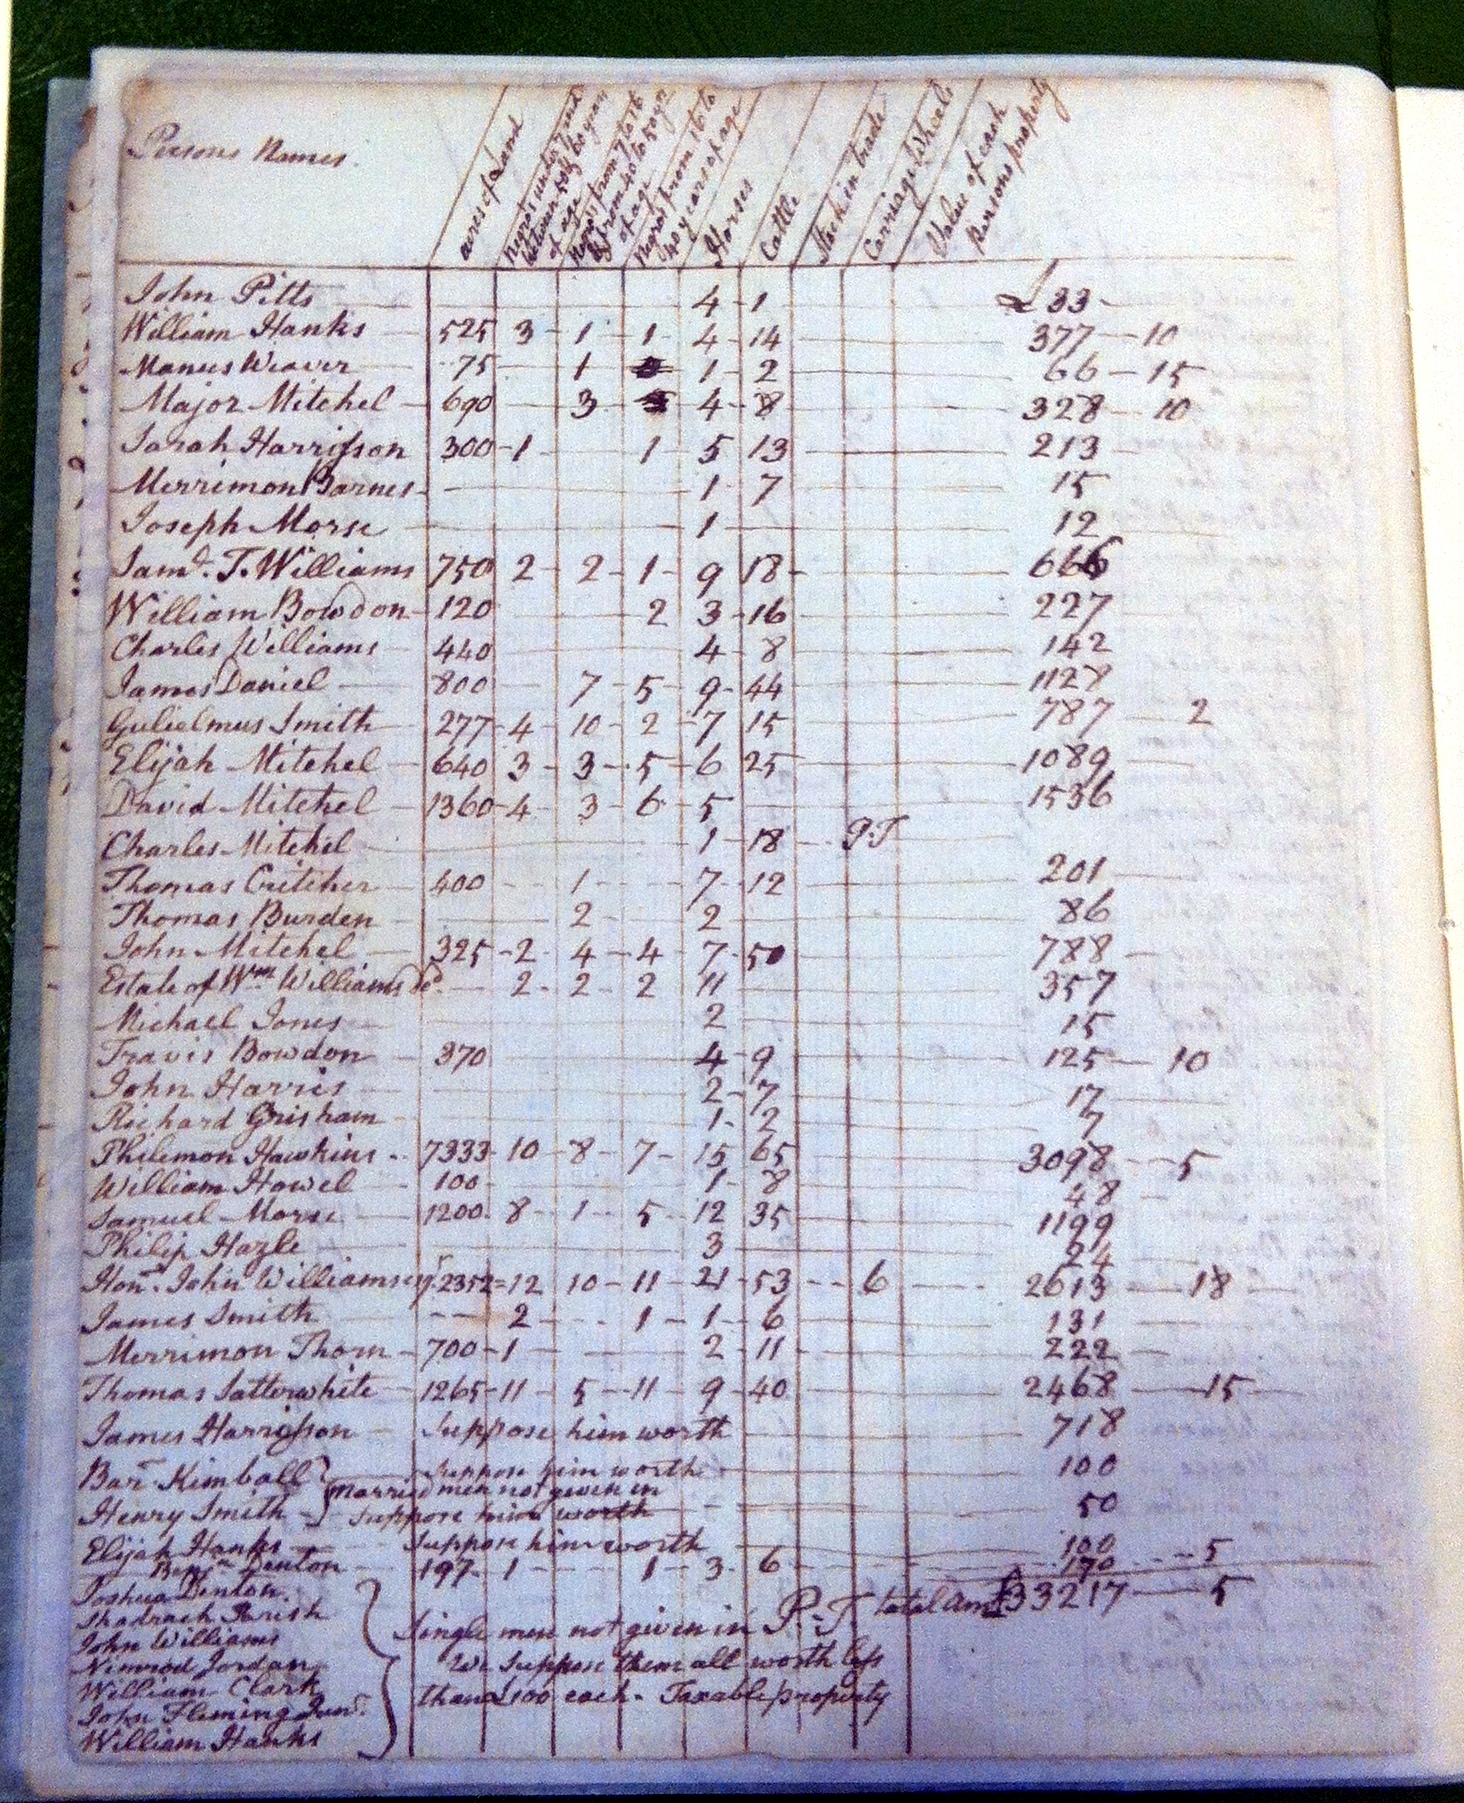 Persons Names.
acres of Land
Negros under 7 and between 50 & 60 years of age
Negros from 7 to 16 & from 40 to 50 yrs of age
Negros from 16 to 40 years of age
Horses
Cattle
Stock in trade
Carriage Wheels
Value of each persons property
John Pitts 4 - 1 £33
William Hanks 525 3 - 1 - 1 - 4 - 14 377 - 10
Manus Weaver 75 1 1 - 2 66 - 15
Major Mitchel 690 3 4 - 8 328 - 10
Sarah Harrisson 300 - 1 1 5 13 213
Merrimon Barnes 1 - 7 15
Joseph Morse 1 12
Samd. T. Williams 750 2 - 2 - 1 - 9 18 666
William Bowdon 120 2 3 - 16 227
Charles Williams 440 4 - 8 142
James Daniel 800 7 - 5 - 9 - 44 1128
Gulielmus Smith 277 - 4 - 10 - 2 - 7 15 787 - 2
Elijah Mitchel 640 3 - 3 - 5 - 6 25 1089
David Mitchel 1360 - 4 - 3 6 5 1536
Charles Mitchel 1 - 18 P.T
Thomas Critcher 400 1 7 - 12 201
Thomas Burden 2 2 86
John Mitchel 325 - 2 - 4 - 4 7 - 50 788
Estate of Wm. Williams decd. 2 - 2 - 2 11 357
Michael Jones 2 15
Travis Bowdon 370 4 - 9 125 - 10
John Harris 2 - 7 17
Richard Grisham 1 - 2 7
Philemon Hawkins 7333 - 10 - 8 - 7 - 15 65 3098 - 5
William Howel 100 1 - 8 48
Samuel Morse 1200 8 - 1 - 5 - 12 35 1199
Philip Hazle 3 24
Hon. John Williams esqr. 2352 = 12 10 - 11 - 21 - 53 - 6 2613 - 18
James Smith 2 1 - 1 - 6 131
Merrimon Thorn 700 - 1 2 - 11 222
Thomas Satterwhite 1265 - 11 - 5 - 11 - 9 - 40 2468 - 15
James Harrisson Suppose him worth 718
Bar Kimball Suppose him worth 100
Married men not given in
Henry Smith Suppose him worth 50
Elijah Hanks Suppose him worth 100
Denton 197 - 1 1 - 3 - 6 170 - 5
Joshua Denton total amt £33217 - 5
Shadrach Parish Single men not given in P.T
John Williams
Nimrod Jordan We Suppose them all worth less
William Clark than £100 each - Taxable property
John Fleming Junr.
William Hanks